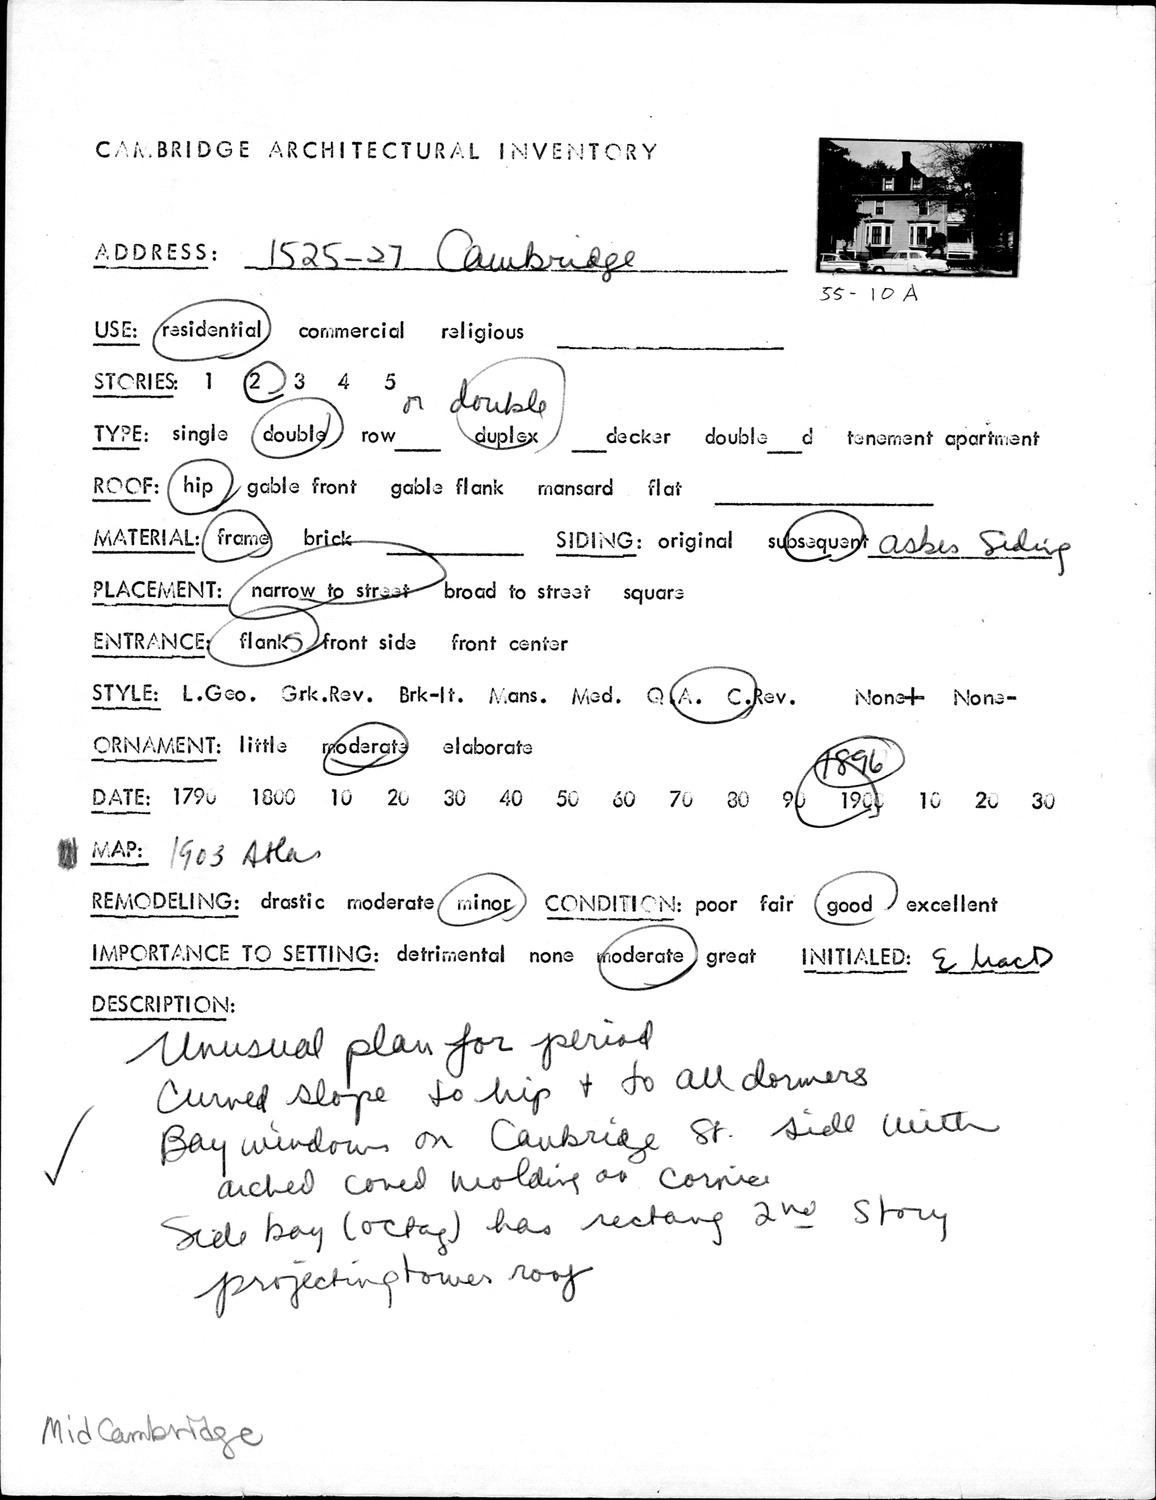 CAMBRIDGE ARCHITECTURAL INVENTORY
ADDRESS: 1525-27 Cambridge
55-10A
USE: residential commercial religious
STORIES: 1 2 3 4 5
or double
TYPE: single double row___ duplex ___decker double___d tenement apartment
ROOF: hip gable front gable flank mansard flat
MATERIAL: frame brick SIDING: original subsequent asbes Siding
PLACEMENT: narrow to street broad to street square
ENTRANCE: flanks front side front center
STYLE: L.Geo. Grk.Rev. Brk-It. Mans. Med. Q.A. C.Rev. None+ None-
ORNAMENT: little moderate elaborate
1896
DATE: 1790 1800 10 20 30 40 50 60 70 80 90 1900 10 20 30
MAP: 1903 Atlas
REMODELING: drastic moderate minor CONDITION: poor fair good excellent
IMPORTANCE TO SETTING: detrimental none moderate great INITIALED: E MacD
DESCRIPTION:
Unusual plan for period
Curved slope to hip + to all dormers
Bay windows on Cambridge St. side with
arched coved molding as cornice
Side bay (octag) has rectang 2nd Story
projecting tower roof
Mid Cambridge